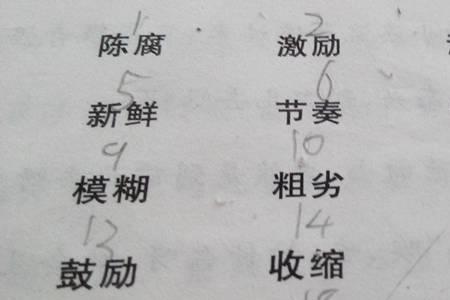 1 2
陈腐 激励
5 6
新鲜 节奏
9 10
模糊 粗劣
13 14
鼓励 收缩